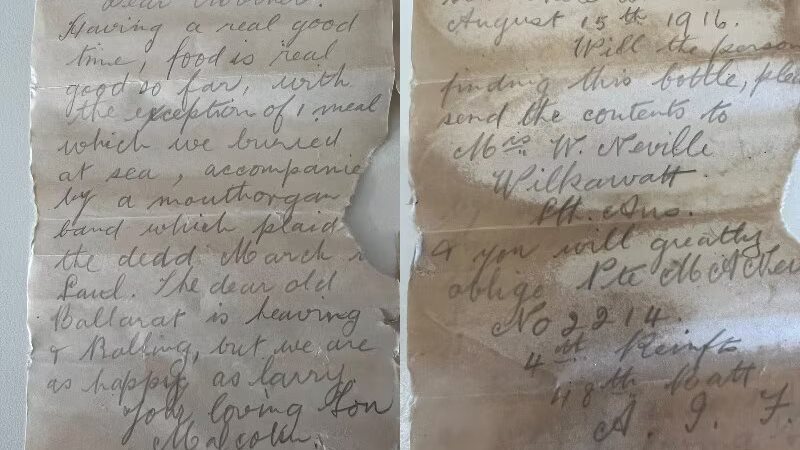 Dear Mother.
Having a real good
time, food is real
good so far, with
the exception of 1 meal
which we buried
at sea, accompanie
by a mouthorgan
band which plaid
the dedd March
Saul. The dear old
Ballarat is heaving
& Rolling, but we are
as happy as larry
Your loving Son
Malcolm.
August 15th 1916.
Will the person
finding this bottle, plea
send the contents to
Mrs W. Neville
Wilkawatt.
Sth. Aus.
& you will greatly
oblige Pte M A Nev
No 2214.
4th Reinfts
48th Batt
A. I. F.